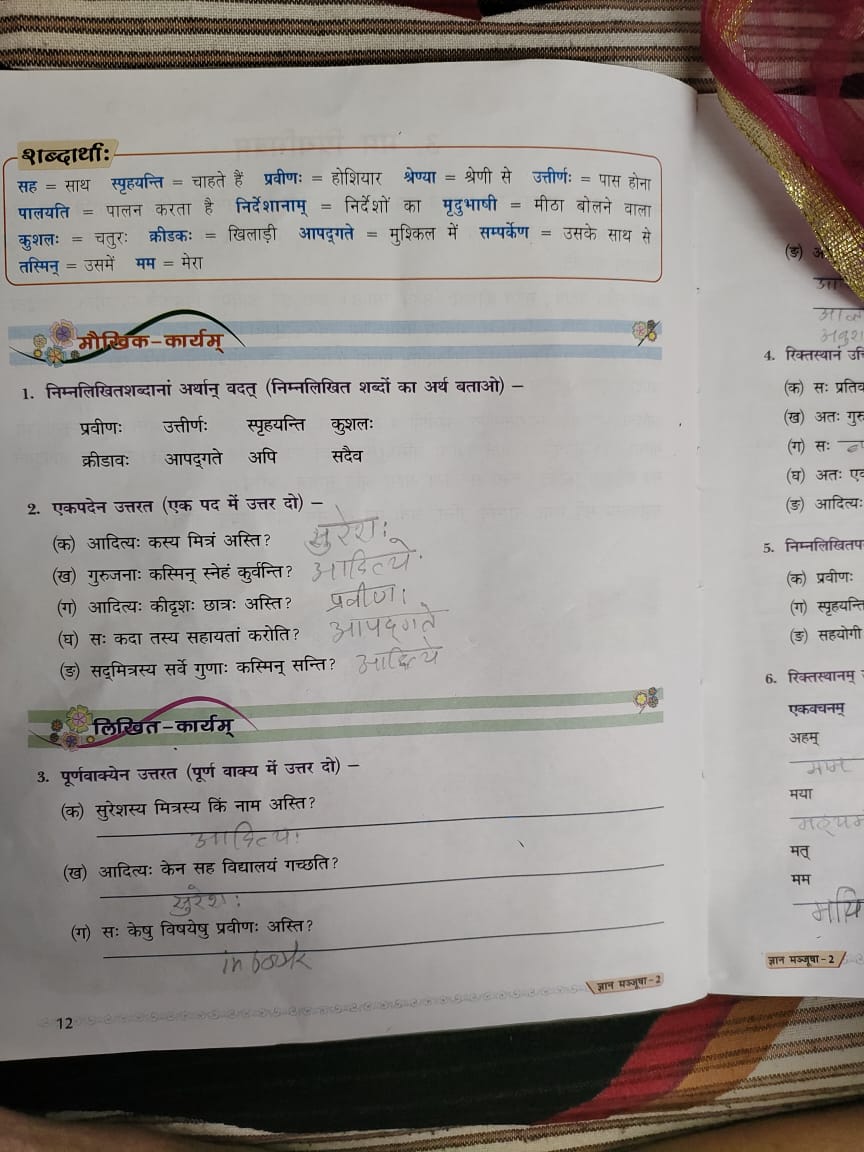 शब्दार्थाः
सह = साथ स्पृहयन्ति = चाहते हैं प्रवीणः = होशियार श्रेण्या = श्रेणी से उत्तीर्णः = पास होना
पालयति = पालन करता है निर्देशानाम् = निर्देशों का मृदुभाषी = मीठा बोलने वाला
कुशलः = चतुरः क्रीडकः = खिलाड़ी आपद्गते = मुश्किल में सम्पर्केण = उसके साथ से
तस्मिन् = उसमें मम = मेरा
मौखिक-कार्यम्
1. निम्नलिखितशब्दानां अर्थान् वदत् (निम्नलिखित शब्दों का अर्थ बताओ) –
प्रवीणः उत्तीर्णः स्पृहयन्ति कुशलः
क्रीडावः आपद्गते अपि सदैव
2. एकपदेन उत्तरत (एक पद में उत्तर दो) –
(क) आदित्यः कस्य मित्रं अस्ति? सुरेशः
(ख) गुरुजनाः कस्मिन् स्नेहं कुर्वन्ति? आदित्ये
(ग) आदित्यः कीदृशः छात्रः अस्ति? प्रवीण।
(घ) सः कदा तस्य सहायतां करोति? आपद्गते
(ङ) सद्मित्रस्य सर्वे गुणाः कस्मिन् सन्ति? आदित्ये
लिखित-कार्यम्
3. पूर्णवाक्येन उत्तरत (पूर्ण वाक्य में उत्तर दो) –
(क) सुरेशस्य मित्रस्य किं नाम अस्ति?
आदित्यः
(ख) आदित्यः केन सह विद्यालयं गच्छति?
सुरेशः
(ग) सः केषु विषयेषु प्रवीणः अस्ति?
in book
ज्ञान मञ्जूषा-2
12
(ङ)
4. रिक्तस्थानं
(क) सः
(ख) अतः
(ग) सः
(घ) अतः
(ङ) आदित्यः
5.
(क) प्रवीणः
(ग)
(ङ) सहयोगी
6. रिक्तस्थानम्
एकवचनम्
अहम्
मया
मत्
मम
मयि
ज्ञान मञ्जूषा-2